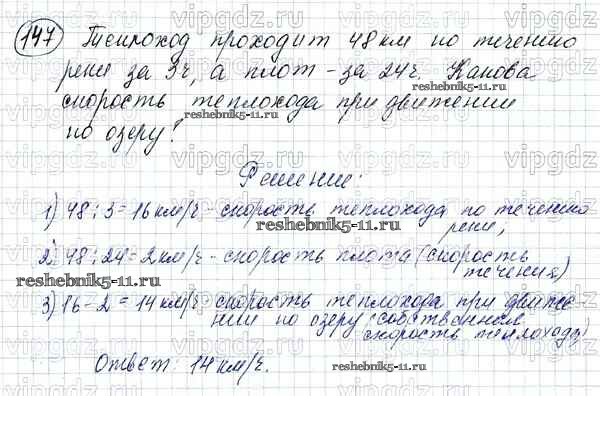 147 Теплоход проходит 48 км по течению
реки за 3ч, а плот - за 24ч. Какова
скорость теплохода при движении
по озеру?
Решение:
1) 48 : 3 = 16 км/ч - скорость теплохода по течению
реки,
2) 48 : 24 = 2 км/ч - скорость плота (скорость
течения)
3) 16 - 2 = 14 км/ч скорость теплохода при движе-
нии по озеру (собственная
скорость теплохода)
Ответ: 14 км/ч.
vipgdz.ru
reshebnik5-11.ru